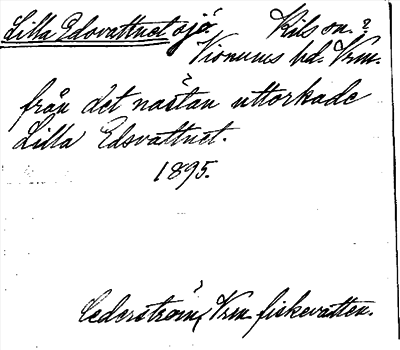 Lilla Edsvattnet sjö. Kils sn.
Visnums hd. Vrm.
från det nästan uttorkade
Lilla Edsvattnet.
1895.
Cederström, Vrm fiskevatten.